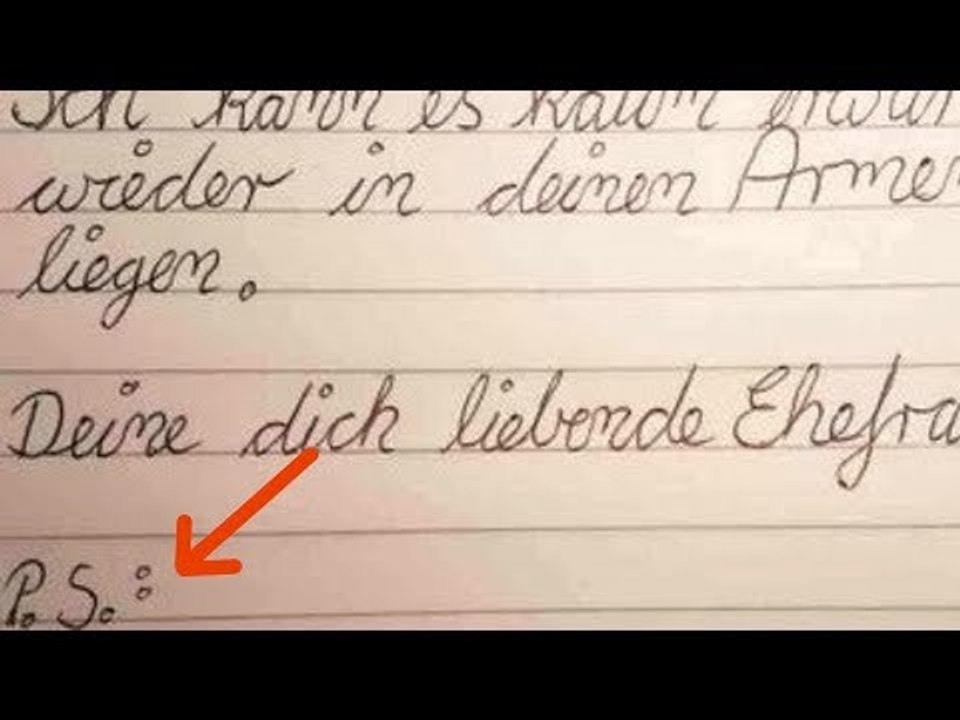 Ich kann es kaum
wieder in deinen Armen
liegen.
Deine dich liebende Ehefra
P.S.: